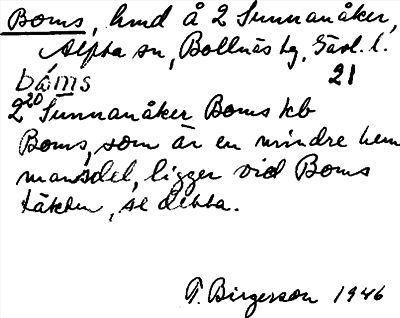 Boms, hmd å 2 Sunnanåker,
Alfta sn, Bollnäs tg, Gävl. l.
bóms 21
2²⁰ Sunnanåker Boms kb
Boms, som är en mindre hem
mansdel, ligger vid Boms
täkten, se detta.
T. Birgerson 1946